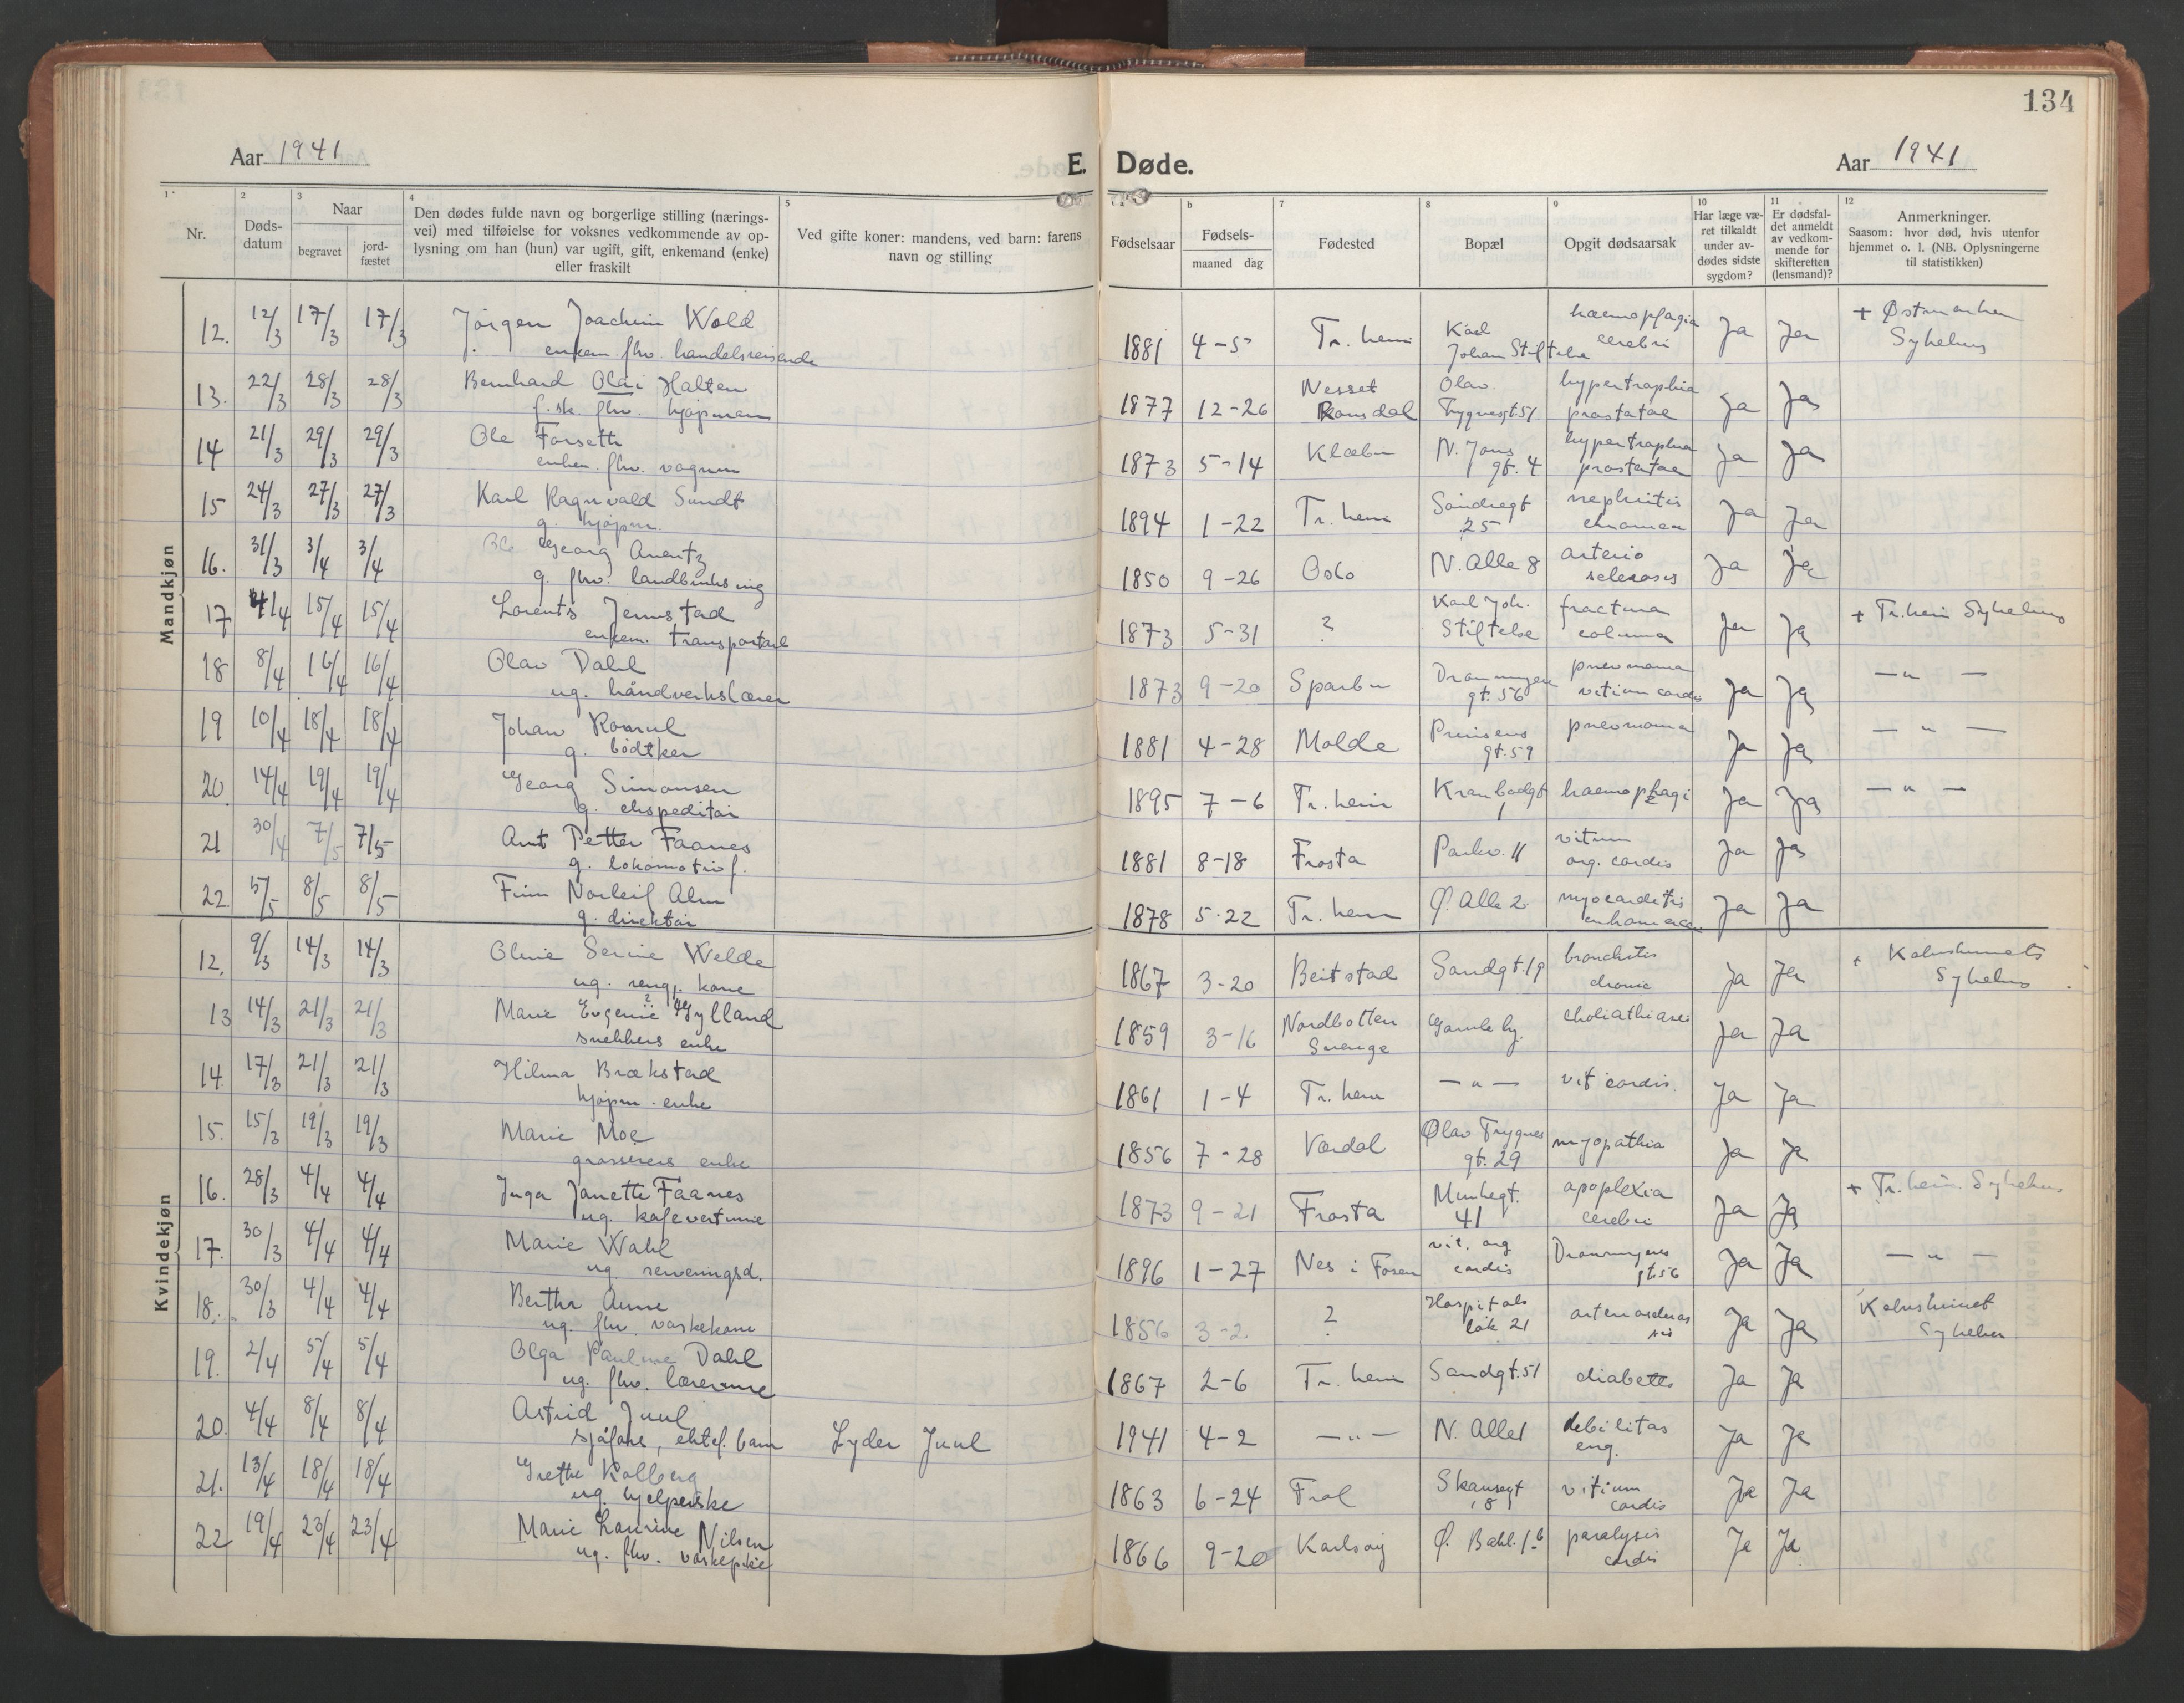 134
Aar 1941
E. Døde.
Aar 1941
1 2 3 4 5 6 a b 7 8 9 10 11 12
Nr.
Døds-
datum
Naar
begravet
jord-
fæstet
Den dødes fulde navn og borgerlige stilling (nærings-
vei) med tilføielse for voksnes vedkommende av op-
lysning om han (hun) var ugift, gift, enkemand (enke)
eller fraskilt
Ved gifte koner: mandens, ved barn: farens
navn og stilling
Fødselsaar
Fødsels-
maaned dag
Fødested
Bopæl
Opgit dødsaarsak
Har læge væ-
ret tilkaldt
under av-
dødes sidste
sygdom?
Er dødsfal-
det anmeldt
av vedkom-
mende for
skifteretten
(lensmand)?
Anmerkninger.
Saasom: hvor død, hvis utenfor
hjemmet o. l. (NB. Oplysningerne
til statistikken)
Mandkjøn
12. 12/3 17/3 17/3 Jørgen Joachim Wold 1881 4-5 Tr. heim Karl haemophagia Ja Ja + Østmarken
enkem. fhv. handelsreisende Johan Stiftelse cerebri Sykehus
13. 22/3 28/3 28/3 Bernhard Olai Halten 1877 12-26 Nesset Olav hypertraphia Ja Ja
f.sk. fhv. kjøpmann Romsdal Trygvesgt. 51 prostatae
14 21/3 29/3 29/3 Ole Forseth 1873 5-14 Klæbu N. Jons hypertraphia Ja Ja
enkem. fhv. vognm gt. 4 prostatae
15 24/3 27/3 27/3 Karl Ragnvald Sundt 1894 1-22 Tr. heim Søndregt nephritis Ja Ja
g. kjøpm. 25
16. 31/3 3/4 3/4 Georg Arentz 1850 9-26 Oslo N. Alle 8 arterio Ja Ja
g. fhv. landbruks ing sclerosis
17 4/4 15/4 15/4 Lorents Jernstad 1873 5-31 ? Karl Joh. fractura Ja Ja + Tr. heim Sykehus
enkem. transportarb Stiftelse columna
18 8/4 16/4 16/4 Olav Dahl 1873 9-20 Sparbu Dronningens pneumonia Ja Ja — „ —
ug. håndverkslærer gt. 56 vitium cordis
19 10/4 18/4 18/4 Johan 1881 4-28 Molde Prinsens pneumonia Ja Ja — „ —
g. bødtker gt. 59
20. 14/4 19/4 19/4 Georg Simonsen 1895 7-6 Tr. heim Krambodgt haemophagi Ja Ja — „ —
g. ekspeditør 1
21 30/4 7/5 7/5 Arnt Petter Faanes 1881 8-18 Frosta Parkv. 11 vitium Ja Ja
g. lokomotivf. org. cordis
22. 5/5 8/5 8/5 Finn Norleif Alm 1878 5-22 Tr. heim Ø. Alle 2. myocarditis Ja Ja
g. direktør
Kvindekjøn
12. 9/3 14/3 14/3 Oline Serine Welde 1867 3-20 Beitstad Sandgt. 19 bronchitis Ja Ja + Kalvskinnets
ug. rengj. kone chronic Sykehus
13 14/3 21/3 21/3 Marie Eugenie Gylland 1859 3-16 Nordbotten Gamle hj. Ja Ja
snekkers enke Sverige
14. 17/3 21/3 21/3 Hilma Brækstad 1861 1-4 Tr. heim — „ — vit cordis. Ja Ja
kjøpm. enke
15. 15/3 19/3 19/3 Marie Moe 1856 7-28 Værdal Olav Trygves myopathia Ja Ja
grosserers enke gt. 29
16. 28/3 4/4 4/4 Inga Janette Faanes 1873 9-21 Frosta Munkegt. apoplexia Ja Ja + Tr. heim Sykehus
ug. kafevertinne 41 cerebri
17. 30/3 4/4 4/4 Marie Wahl 1896 1-27 Nes i Fosen vit. org Dronningens Ja Ja — „ —
ug serveringsd. cordis gt. 56
18. 30/3 4/4 4/4 Bertha Aune 1856 3-2. ? Hospitals arterioscleros Ja Ja Kalvskinnet
ug. fhv. vaskekone løk 21 sis Sykehus
19. 2/4 5/4 5/4 Olga Pauline Dahl 1867 2-6 Tr. heim Sandgt. 51 diabetes Ja Ja
ug. fhv. lærerinne
20. 4/4 8/4 8/4 Astrid Juul Lyder Juul 1941 4-2 — „ — N. Alle 1 debilitas Ja Ja
sjåførs, ektef. barn eng.
21. 13/4 18/4 18/4 Grethe Kolberg 1863 6-24 Frol Skansegt vitium Ja Ja
ug. hjelperske 18 cordis
22 19/4 23/4 23/4 Marie Laurine Nilsen 1866 9-20 Karlsøy Ø. Bakl. 1b paralysis Ja Ja
ug. fhv. vaskepike cordis